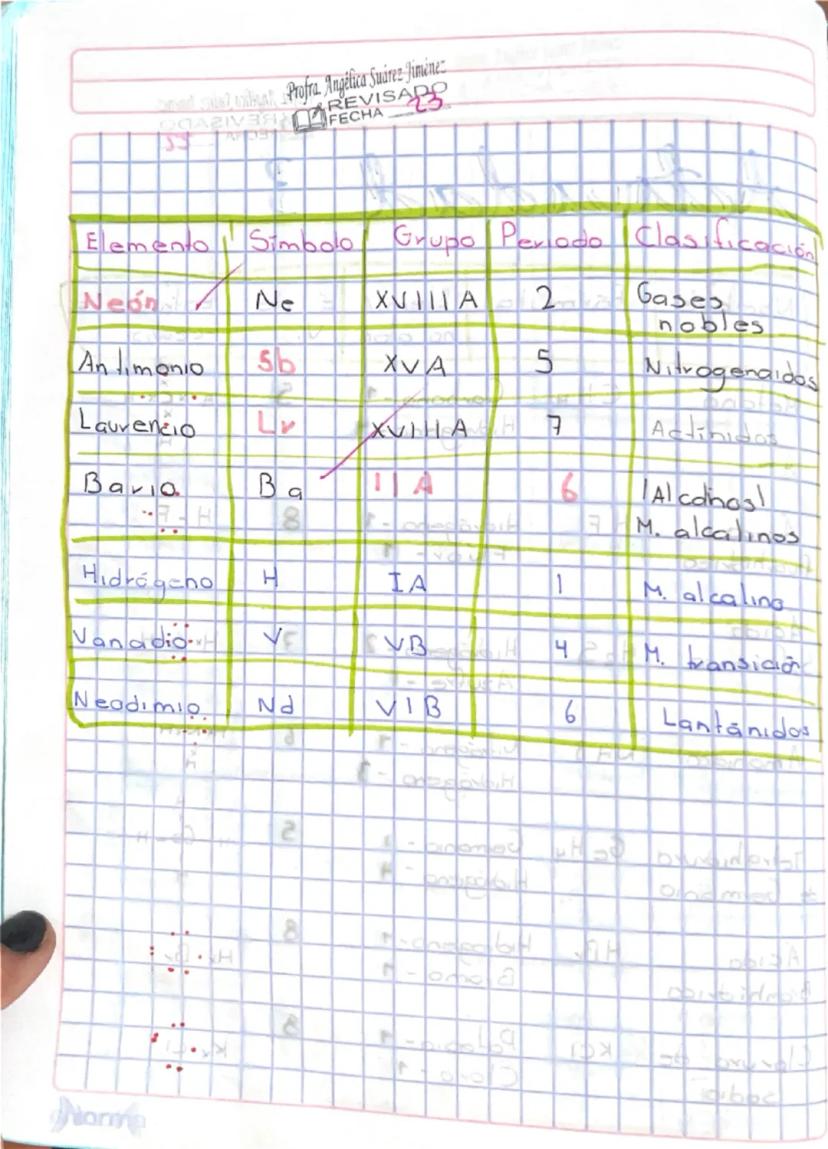 Profra. Angélica Suárez Jiménez
REVISADO
FECHA 23
Elemento Símbolo Grupo Periodo Clasificación
Neón Ne XVIIIA 2 Gases nobles
Antimonio Sb XVA 5 Nitrogenoidos
Laurencio Lr XVIIIA 7 Actínidos
Bario Ba IIA 6
M. alcalinos
Hidrógeno H IA 1 M. alcalino
Vanadio V VB 4 M. transición
Neodimio Nd VIB 6 Lantánidos
Norma